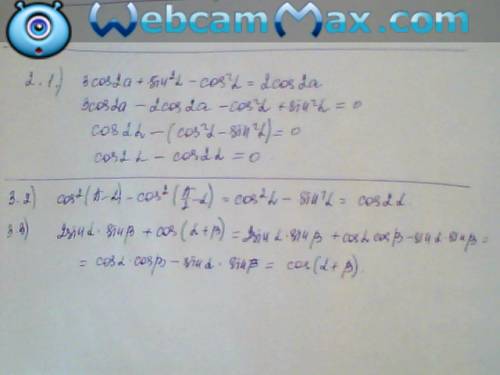 WebcamMax.com
2.1.) 3cos2a + sin²α - cos²α = 2cos2a
3cos2a - 2cos2a - cos²α + sin²α = 0
cos2α - (cos²α - sin²α) = 0
cos2α - cos2α = 0
3.2) cos²(π-α) - cos²(π/2-α) = cos²α - sin²α = cos2α.
3.3) 2sinα·sinβ + cos(α+β) = 2sinα·sinβ + cosα cosβ - sinα·sinβ =
= cosα·cosβ - sinα·sinβ = cos(α+β).